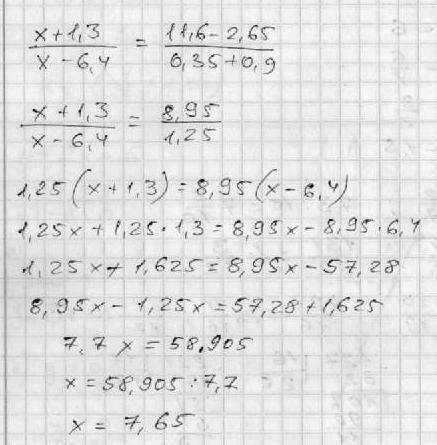 (x+1,3)/(x-6,4) = (11,6-2,65)/(0,35+0,9)
(x+1,3)/(x-6,4) = 8,95/1,25
1,25(x+1,3)=8,95(x-6,4)
1,25x+1,25·1,3=8,95x-8,95·6,4
1,25x+1,625=8,95x-57,28
8,95x-1,25x=57,28+1,625
7,7x=58,905
x=58,905:7,7
x=7,65